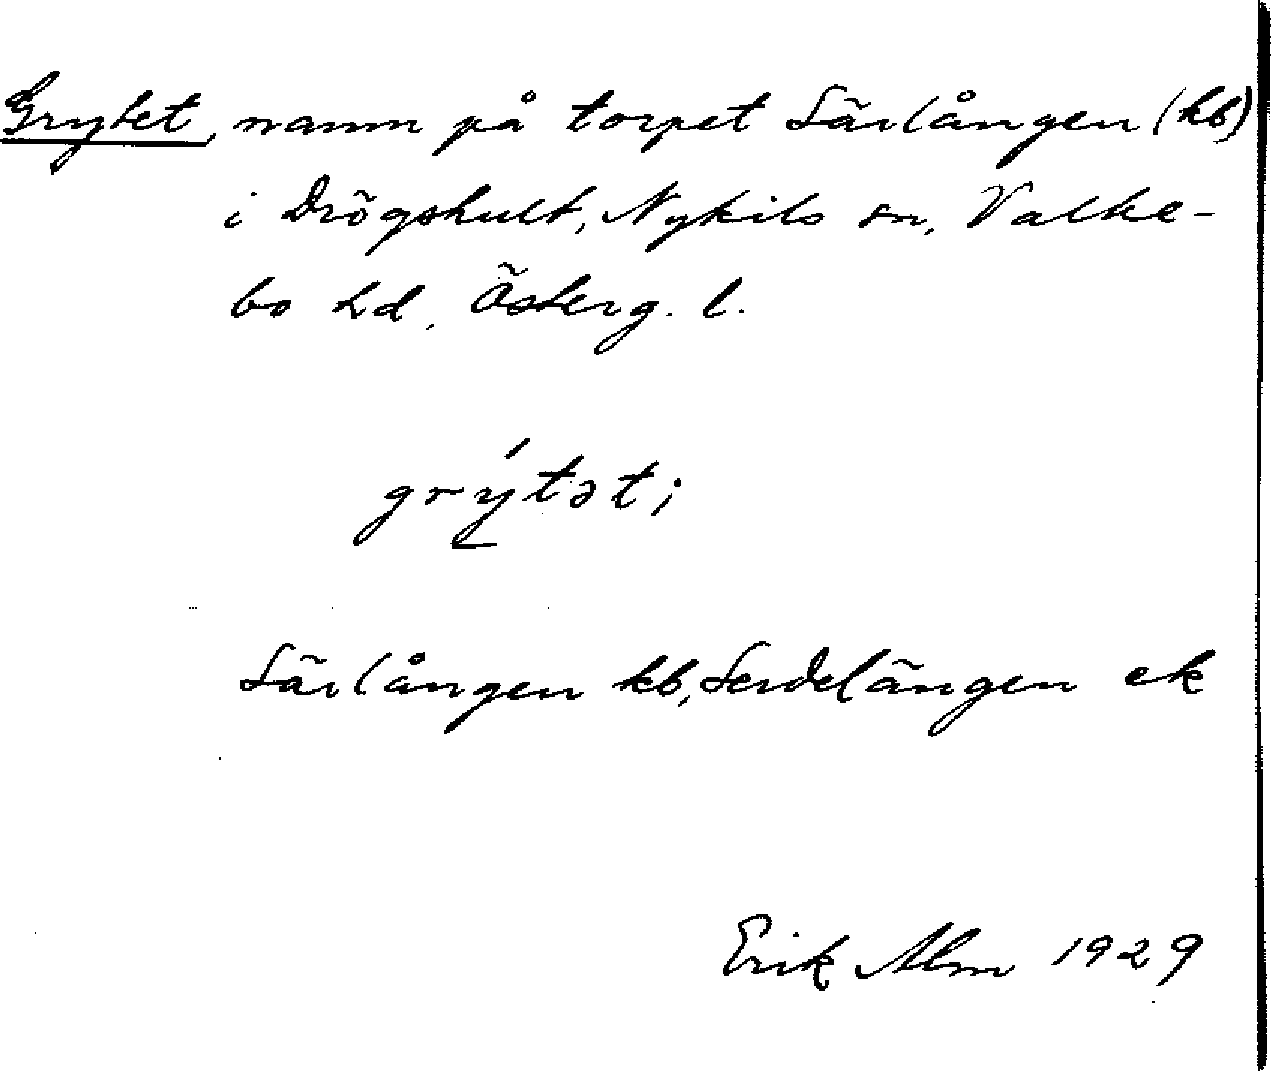 Grytet, namn på torpet Särlången (kb)
i Drögshult, Nykils sn, Valke-
bo hd, Österg. l.
grýtət;
Särlången kb, Serdelängen ek
Erik Alm 1929